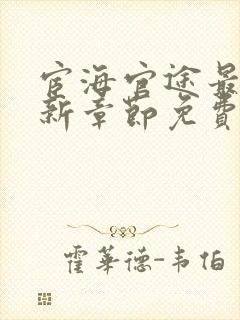 宦海官途最
新章节免费
霍华德-韦伯